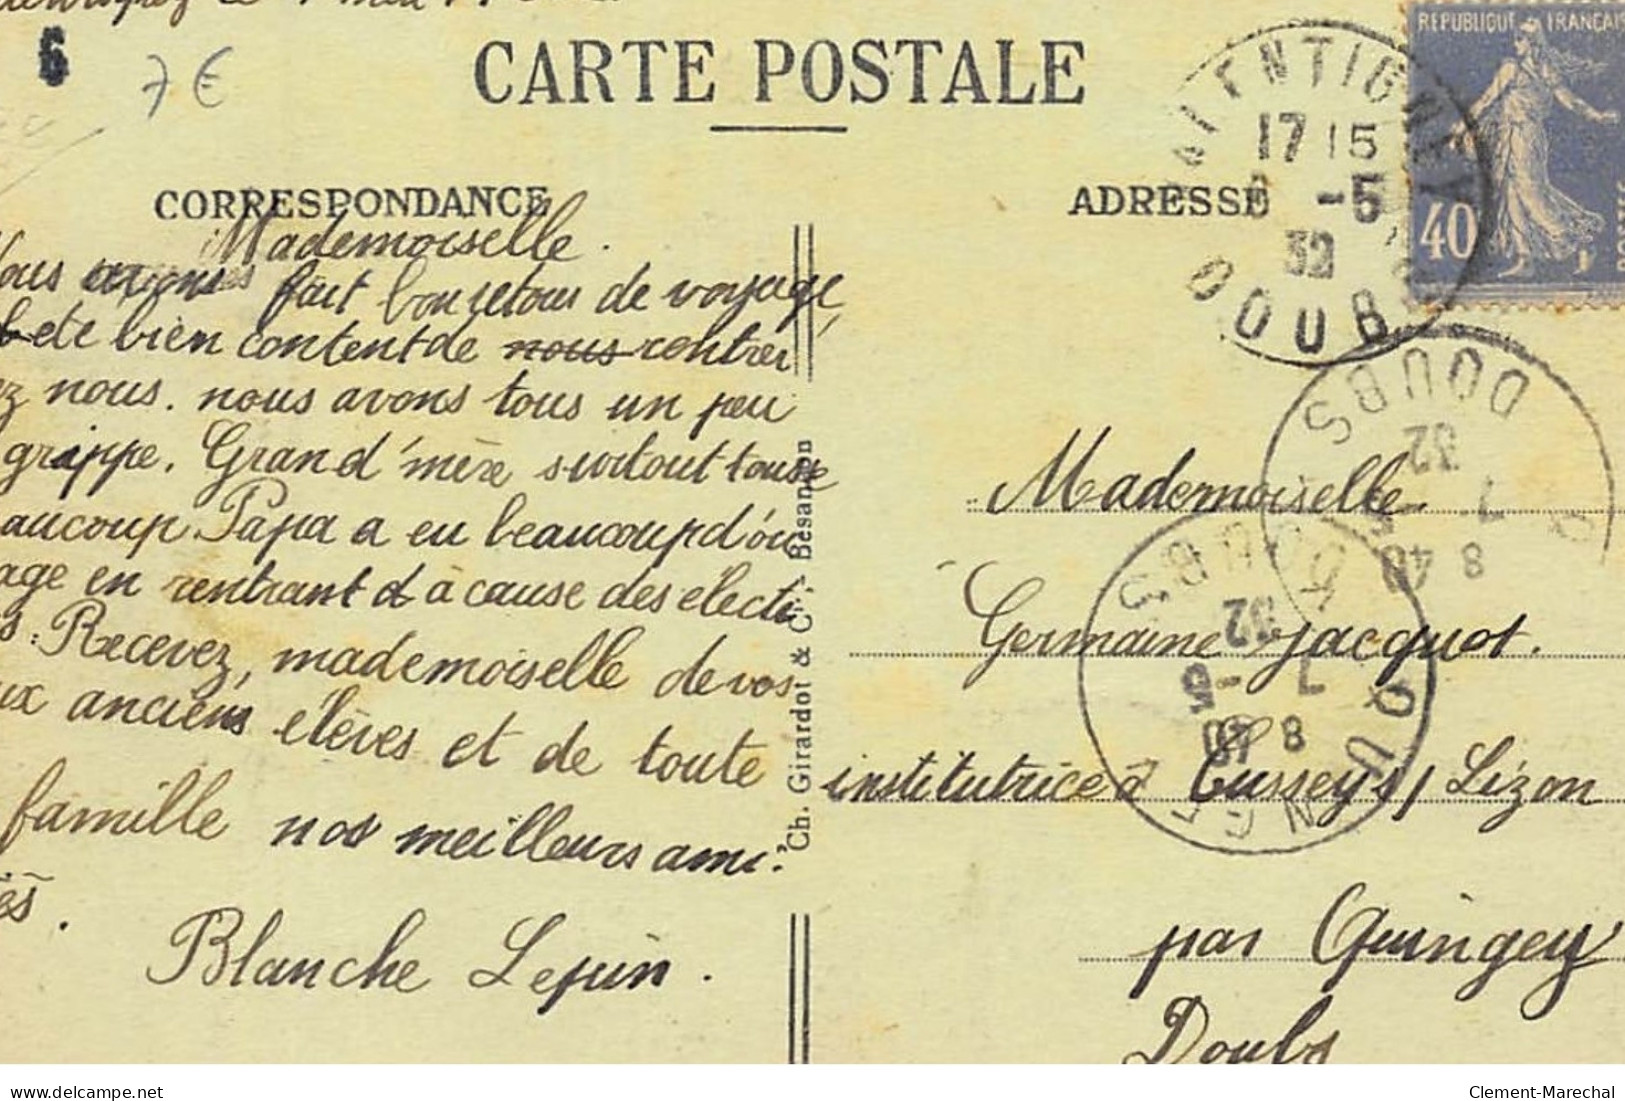 6
7 €
CARTE POSTALE
CORRESPONDANCE
Mademoiselle.
fait bon retour de voyage,
ete bien content de nous rentrer
nous. nous avons tous un peu
grippe. Grand'mère surtout tousse
aucoup Papa a eu beaucoup d'ou
age en rentrant d à cause des electi
s. Recevez, mademoiselle de vos
ux anciens élèves et de toute
famille nos meilleurs ami-
és.
Blanche Lepin.
Ch. Girardot & Cie, Besançon
ADRESSE
VALENTIGNEY
17 15
6 -5
32
DOUBS
REPUBLIQUE FRANÇAISE
40
POSTES
DOUBS
32
7 -5
8 40
QUINGEY
DOUBS
32
7 -5
8 40
Mademoiselle
Germaine Jacquot.
institutrice à Cussey s/ Lizon
par Quingey
Doubs
delcampe.net
Clement-Marechal